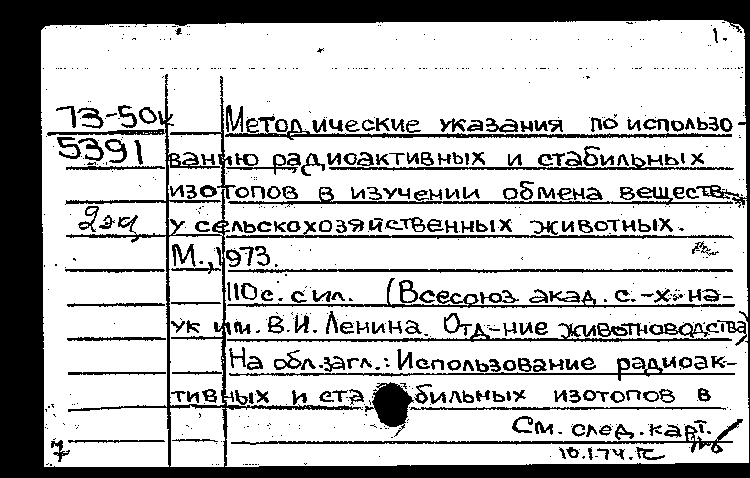 1.
73-50к Методические указания по использо-
5391 ванию радиоактивных и стабильных
изотопов в изучении обмена веществ
2экз у сельскохозяйственных животных.
М., 1973.
110с. с ил. (Всесоюз. акад. с.-х. на-
ук им. В.И. Ленина. Отд-ние животноводства)
На обл. загл.: Использование радиоак-
тивных и стабильных изотопов в
См. след. карт.
10.1.74.